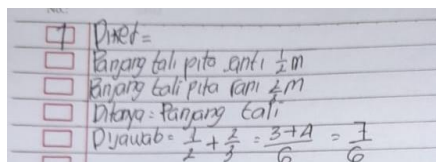 1 Diket =
Panjang tali pita anti 1/2 m
Panjang tali pita rani 2/3 m
Ditanya = Panjang tali
Dijawab = 1/2 + 2/3 = 3+4/6 = 7/6